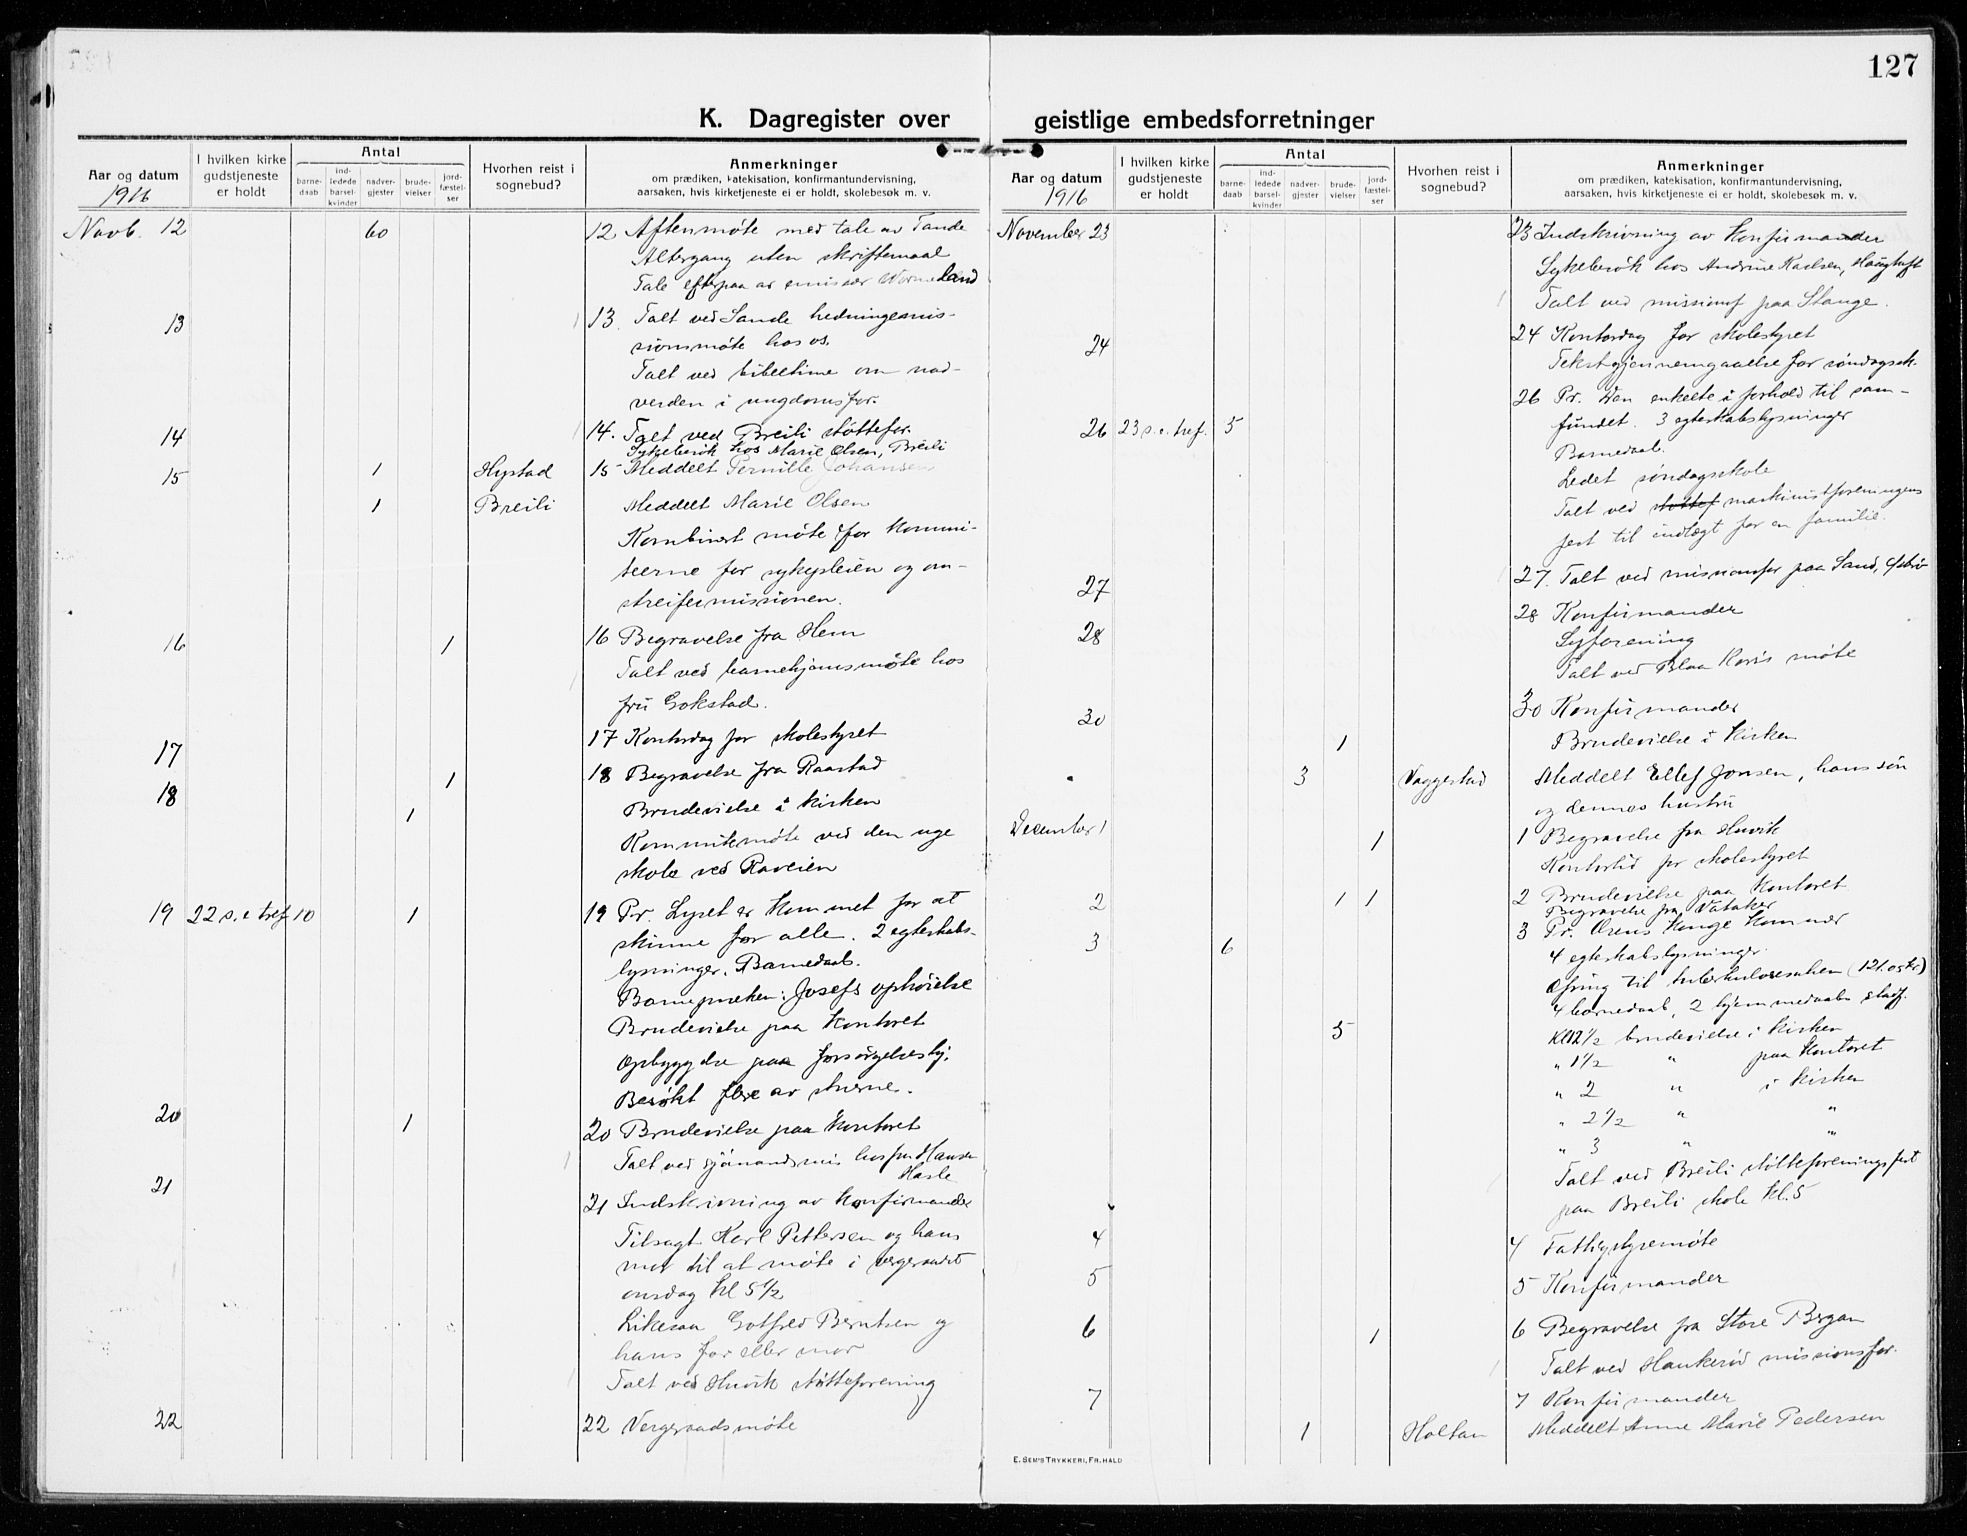 127
K. Dagregister over
geistlige embedsforretninger
Aar og datum
1916
I hvilken kirke gudstjeneste er holdt
Antal
barnedaab
indledede barselkvinder
nadvergjester
brudevielser
jordfæstelser
Hvorhen reist i sognebud?
Anmerkninger
om prædiken, katekisation, konfirmantundervisning,
aarsaken, hvis kirketjeneste ei er holdt, skolebesøk m. v.
Novb. 12 60 12 Aftenmøte med tale av Tande
Altergang uten skriftemaal
Tale efterpaa av emissær
13 13. Talt ved Sande hedningemis-
sionsmøte hos os.
Talt ved bibeltime om nad-
verden i ungdomsfor.
14 14. Talt ved Breili støttefor.
Sykebesøk hos Marie Olsen, Breili
15 1 Hystad 15 Meddelt Pernille Johansen
1 Breili Meddelt Marie Olsen
Kombinert møte for kommi-
teerne for sykepleien og om-
streifermissionen.
16 1 16 Begravelse fra Hem
Talt ved barnehjemsmøte hos
fru Gokstad.
17 17 Kontordag for skolestyret
18 1 18 Begravelse fra Raastad
1 Brudevielse i kirken
Kommitemøte ved den nye
skole ved Raveien
19 22 s. e tref. 10 1 19 Pr. Lyset er kommet for at
skinne for alle. 2 egteskabs-
lysninger. Barnedaab.
Barnepræken: Josefs ophøielse
Brudevielse paa kontoret
Opbyggelse paa forsørgelseshj.
Besøkt flere av stuerne.
20 1 20 Brudevielse paa kontoret
Talt ved sjömandsmis hos fru Hansen
Hasle
21 21 Indskrivning av konfirmander
Tilsagt Karl Pettersen og hans
mor til at møte i vergeraadet
onsdag kl 5 1/2
Likesaa Gotfred Berntsen og
hans far eller mor
Talt ved Huvik støtteforening
22 22 Vergeraadsmøte
Aar og datum
1916
I hvilken kirke gudstjeneste er holdt
Antal
barnedaab
indledede barselkvinder
nadvergjester
brudevielser
jordfæstelser
Hvorhen reist i sognebud?
Anmerkninger
om prædiken, katekisation, konfirmantundervisning,
aarsaken, hvis kirketjeneste ei er holdt, skolebesøk m. v.
November 23 23 Indskrivning av konfirmander
Sykebesøk hos Andrine Karlsen, Haugtuft
Talt ved missionsf paa Stange.
24 24 Kontordag for skolestyret
Tekstgjennemgaaelse for søndagssk.
26 23 s. e. tref. 5 26 Pr. Den enkelte i forhold til sam-
fundet. 3 egteskabslysninger
Barnedaab.
Ledet søndagsskole
Talt ved støttef maskinistforeningens
fest til indtægt for en familie.
27 27. Talt ved missionsfor paa Sand,
28 28 Konfirmander
Syforening
Talt ved Blaa Kors møte
30 30 Konfirmander
1 Brudevielse i kirken
" 3 Vaggestad Meddelt Ellef Jonsen, hans søn
og dennes hustru
December 1 1 1 Begravelse fra Huvik
Kontortid for skolestyret
2 1 1 2 Brudevielse paa kontoret
Begravelse fra Vataker
3 6 3 Pr. Guds konge kommer
4 egteskabslysninger
Ofring til tuberkulosesaken (121. os Kr)
4 barnedaab, 2 hjemmedaab stadf.
5 Kl 12 1/2 brudevielse i kirken
" 1 1/2 " paa kontoret
" 2 " i kirken
" 2 1/2 " "
" 3 " "
Talt ved Breili støtteforenings fest
paa Breili skole kl. 5
4 4 Fattigstyremøte
5 5 Konfirmander
6 1 6 Begravelse fra Store Bergan
Talt ved Haukerød missionsfor.
7 7 Konfirmander
1 Holtan Meddelt Anne Marie Pedersen
E. SEM'S TRYKKERI, FR.HALD